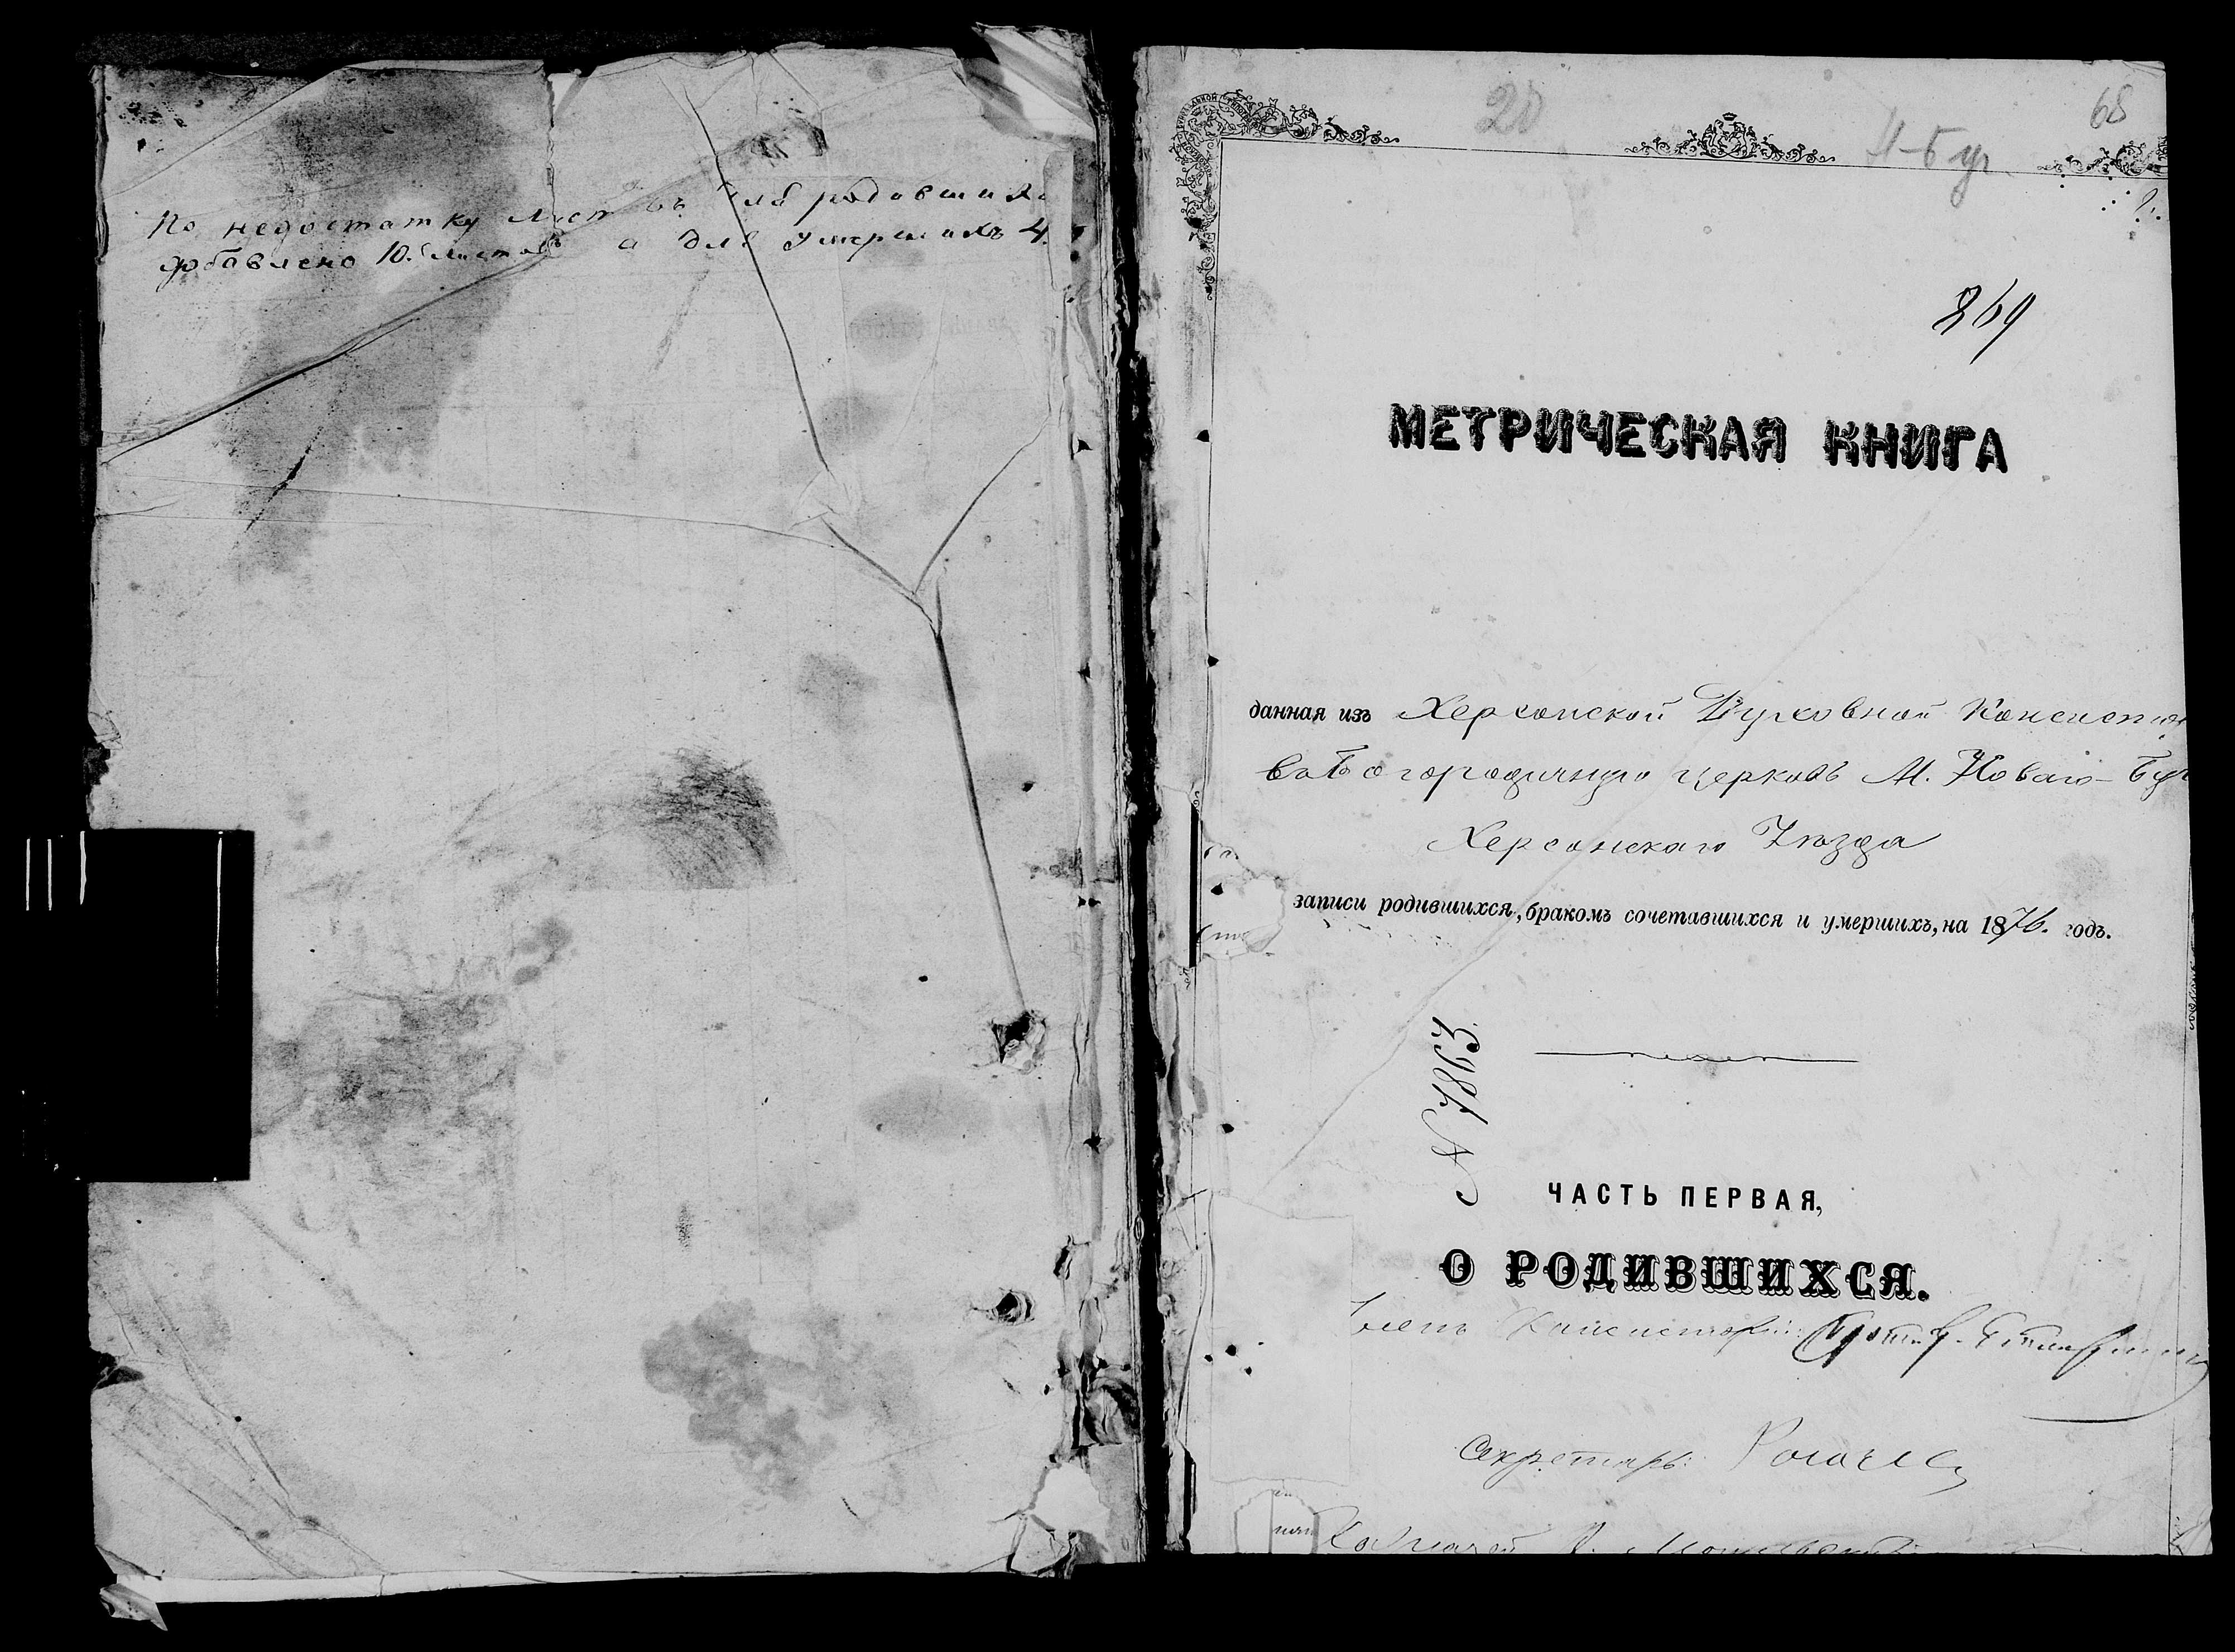 По недостатку листовъ для родившихся
добавлено 10. листовъ а для умершихъ 4.
20
Н-Буг
68
869
МЕТРИЧЕСКАЯ КНИГА
данная изъ Херсонской Духовной Консистор
въ Богородичную церковь М. Новаго-Буг
Херсонскаго Уѣзда
записи родившихся, бракомъ сочетавшихся и умершихъ, на 1876. годъ.
№ 7863
ЧАСТЬ ПЕРВАЯ,
О РОДИВШИХСЯ.
Членъ Консисторіи: Прот.
Секретарь: